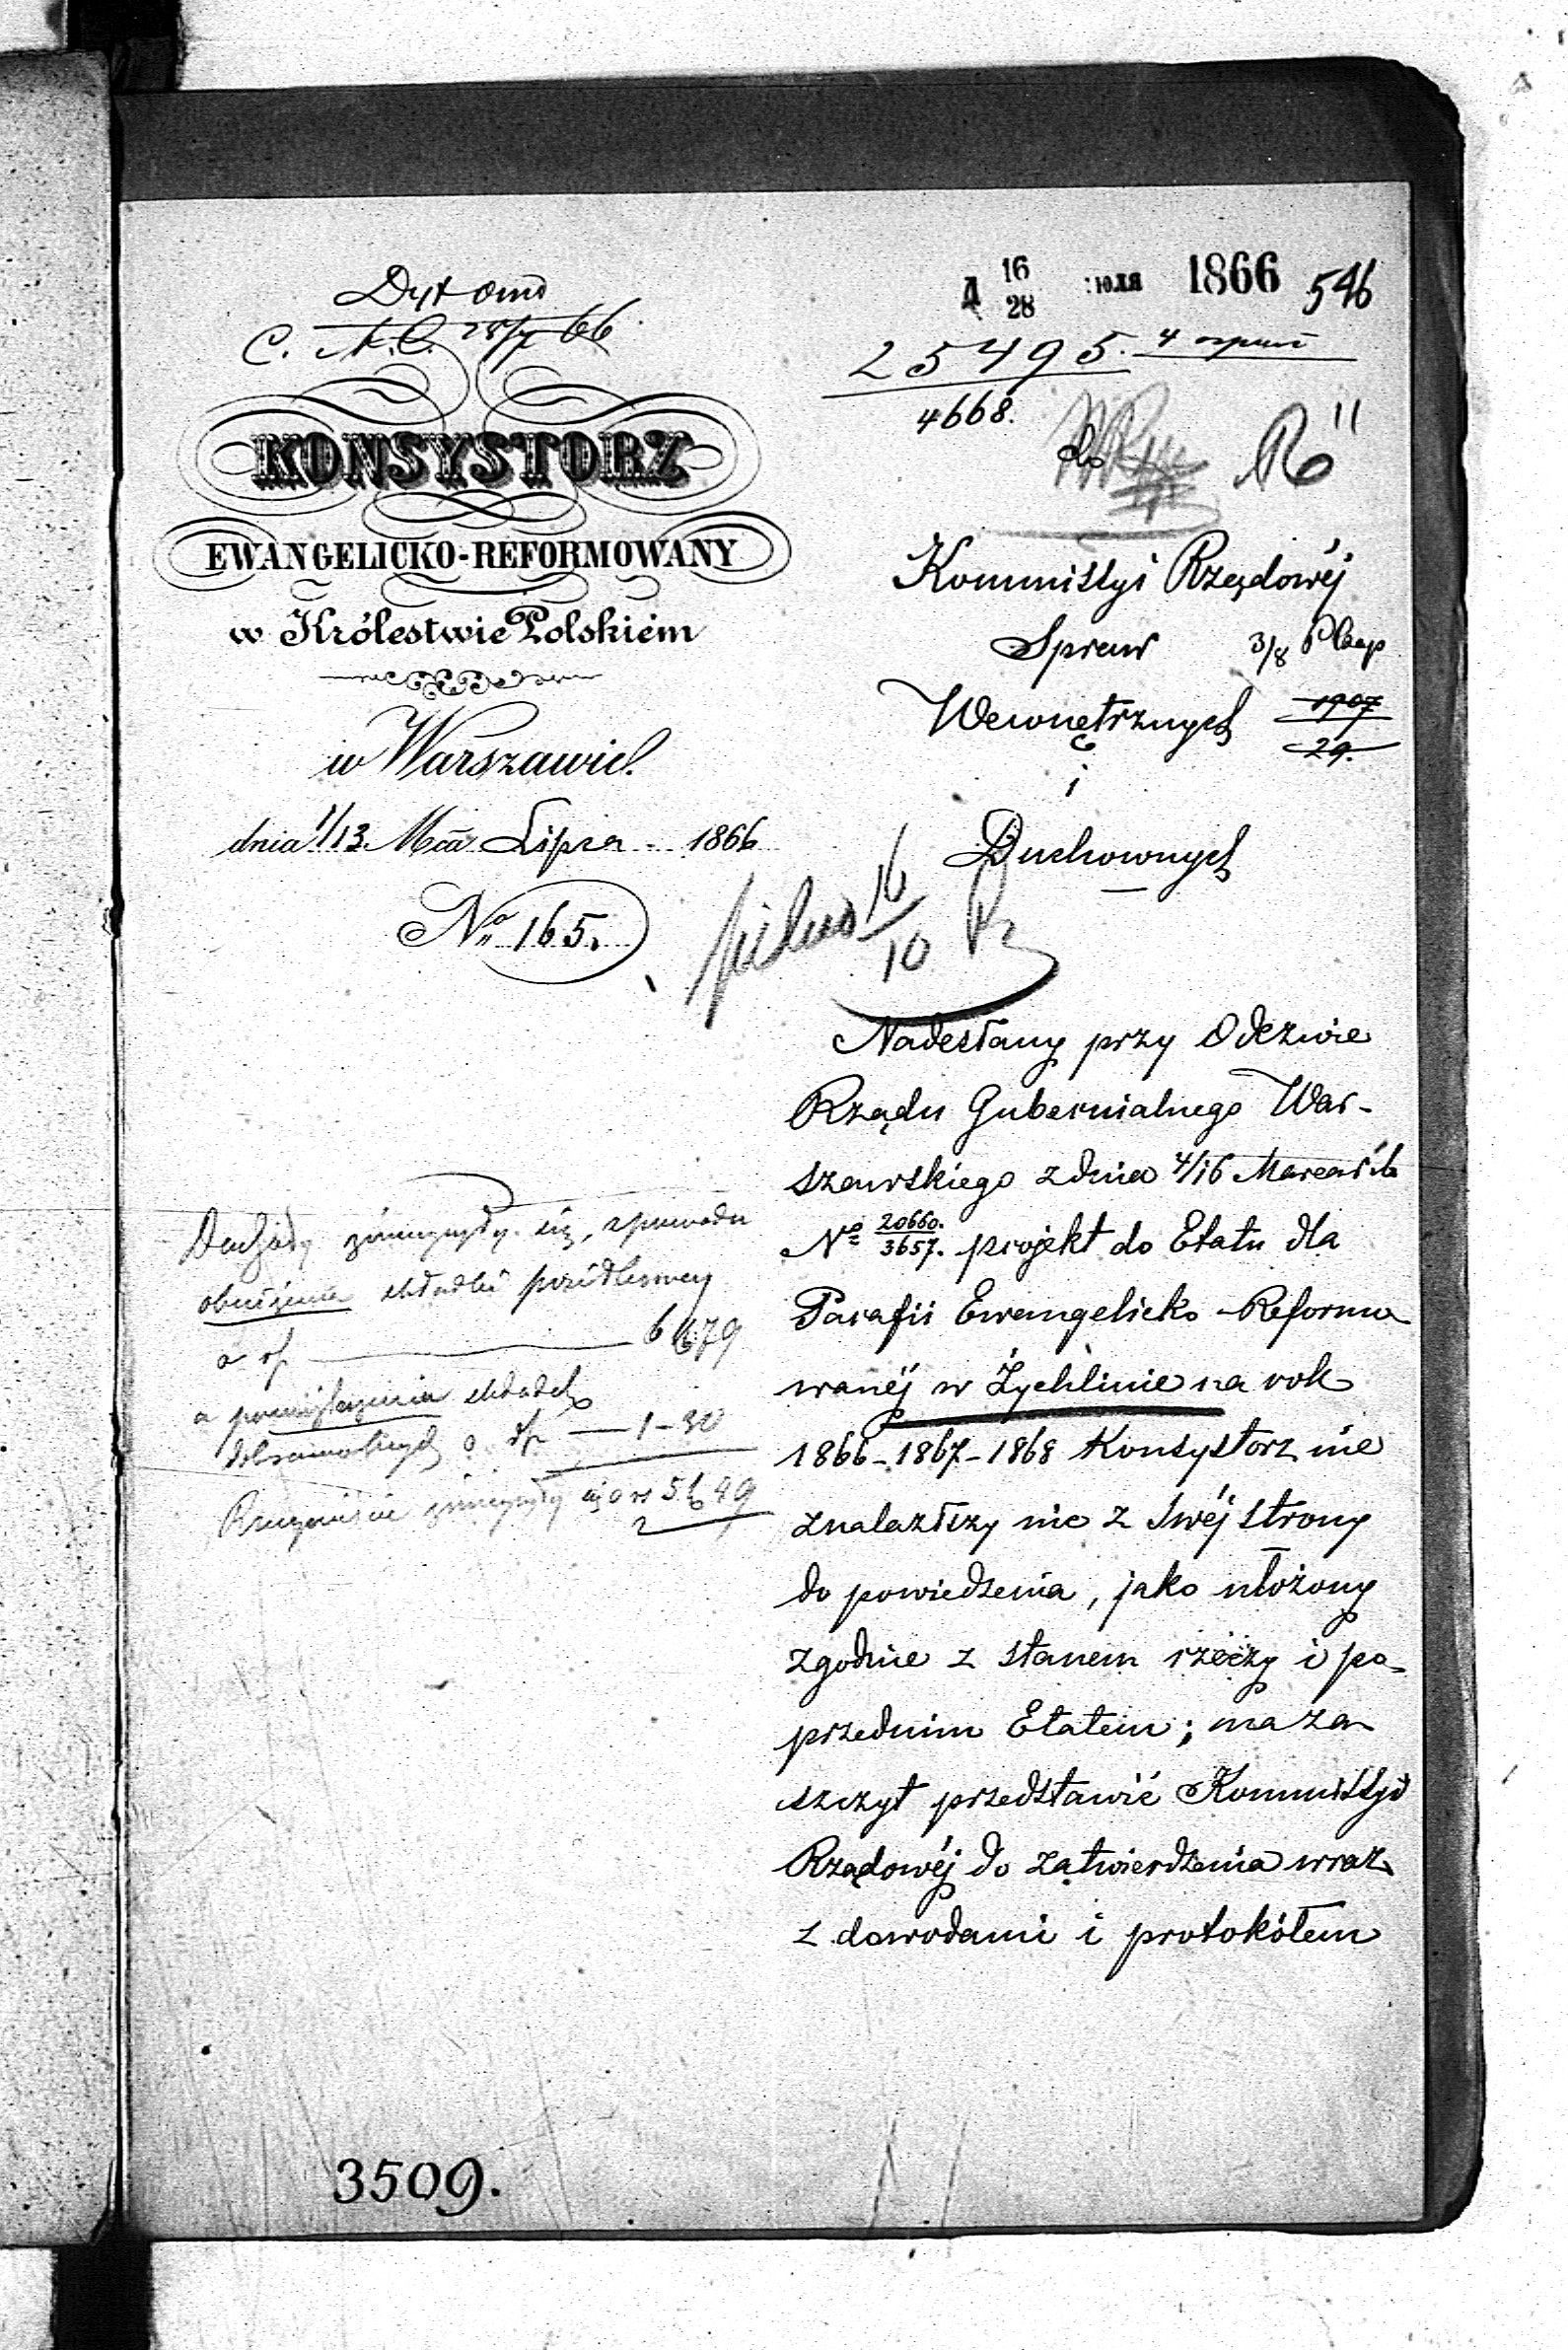 C. 28/7 66
KONSYSTORZ
EWANGELICKO-REFORMOWANY
w Królestwie Polskiém
w Warszawie.
dnia 1/13. Mca Lipca 1866
No 165.
16
28 ІЮЛЯ 1866 546
25495.
4668.
do
Kommissyi Rządowéj
Spraw 3/8
Wewnętrznych 1907
29.
i
Duchownych
pilno 16
10
Nadesłany przy Odezwie
Rządu Gubernialnego War-
szawskiego z dnia 4/16 Marca r b
No 20660.
3657. projekt do Etatu dla
Parafii Ewangelicko-Reformo
wanéj w Żychlinie na rok
1866-1867-1868 Konsystorz nie
znalazłszy nic z swéj strony
do powiedzenia, jako ułożony
zgodnie z stanem rzeczy i po-
przednim Etatem; ma za
szczyt przedstawić Kommissyi
Rządowéj do zatwierdzenia wraz
z dowodami i protokółem
Dochody zmniejszyły się, z powodu
obniżenia składki
a
a powiększenia składek
dobrowolnych o 1-30
Rzeczywiście zmniejszyły się o
3509.